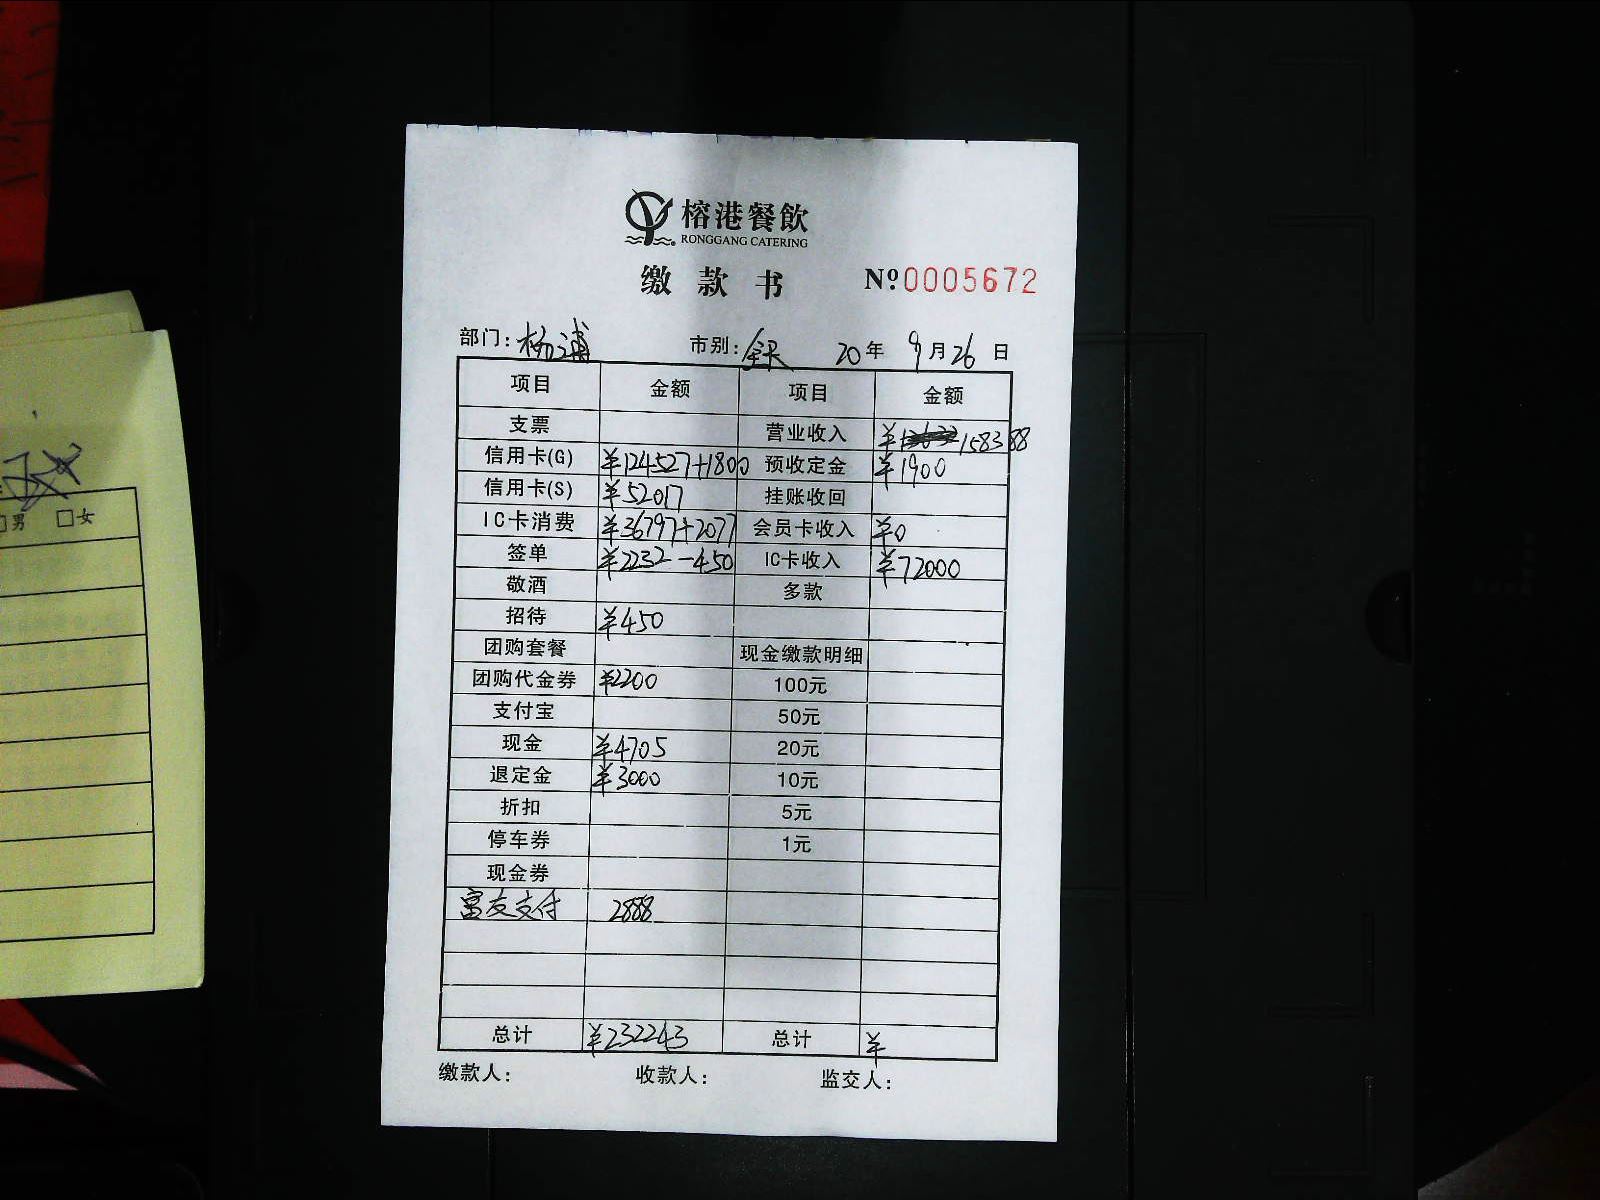 榕港餐飲
RONGGANG CATERING
缴款书 Nº 0005672
部门：杨浦 市别：全天 20年 9月26日
项目 金额 项目 金额
支票 营业收入 ¥158388
信用卡(G) ¥124527+1800 预收定金 ¥1900
信用卡(S) ¥52017 挂账收回
IC卡消费 ¥36797+2077 会员卡收入 ¥0
签单 ¥2232-450 IC卡收入 ¥72000
敬酒 多款
招待 ¥450
团购套餐 现金缴款明细
团购代金券 ¥2200 100元
支付宝 50元
现金 ¥4705 20元
退定金 ¥3000 10元
折扣 5元
停车券 1元
现金券
富友支付 2888
总计 ¥232243 总计 ¥
缴款人： 收款人： 监交人：
□男 □女